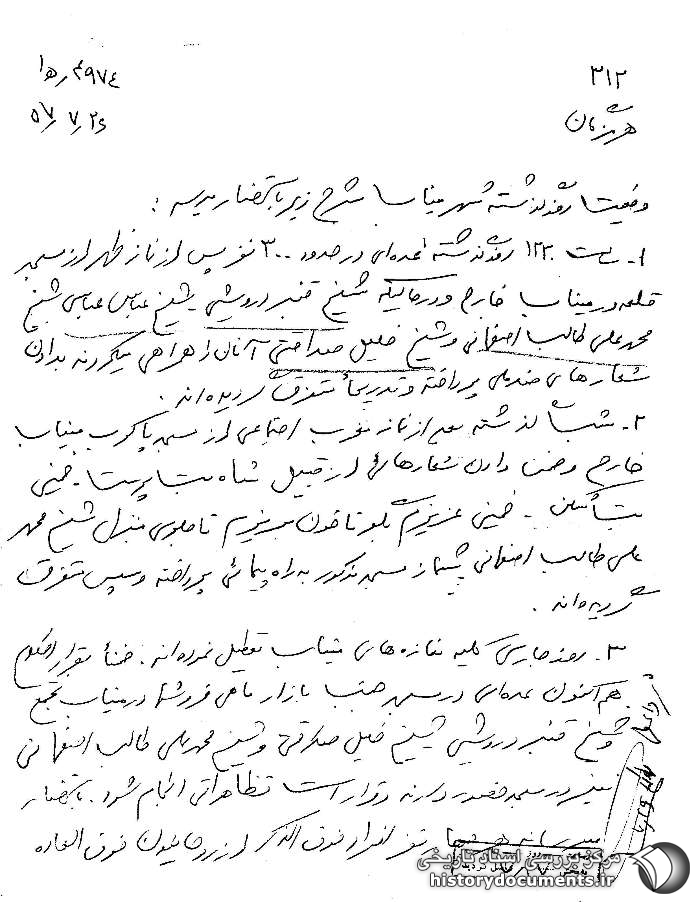 ۳۱۲
هرمزگان
۴۹۷۴ ره‍ ۱
۲۶ ر ۷ ر ۵۷
وضعیت روز گذشته شهر میناب بشرح زیر باستحضار میرسد :
۱- ساعت ۱۲۳۰ روز گذشته عده‌ای در حدود ۳۰۰ نفر پس از نماز ظهر از مسجد
قلعه در میناب خارج و در حالیکه شیخ قنبر درویشی - شیخ عباس عباسی شیخ
محمد علی طالب اصفهانی و شیخ خلیل صداقتی آنان را همراهی میکردند بدادن
شعارهای ضد ملی پرداخته و تدریجاً متفرق گردیده‌اند .
۲- شب گذشته بعد از نماز مغرب اجتماعی از مسجد پاکوب میناب
خارج و ضمن دادن شعارهائی از قبیل شاه بت پرست - خمینی
بت شکن - خمینی عزیزم بگو تا خون بریزم تا جلوی منزل شیخ محمد
علی طالب اصفهانی پیشنماز مسجد مذکور به راه پیمائی پرداخته و سپس متفرق
گردیده‌اند .
۳- روز جاری کلیه مغازه های میناب تعطیل نموده‌اند . ضمناً بقرار اطلاع
هم اکنون عده‌ای در مسجد جنب بازار ماهی فروشها در میناب تجمع
و شیخ قنبر درویشی شیخ خلیل صداقتی و شیخ محمد علی طالب اصفهانی
نیز در مسجد حضور دارند و قرار است تظاهراتی انجام شود . باستحضار
میرساند نفر افراد فوق الذکر از روحانیون فوق العاده
مرکز بررسی اسناد تاریخی
historydocuments.ir